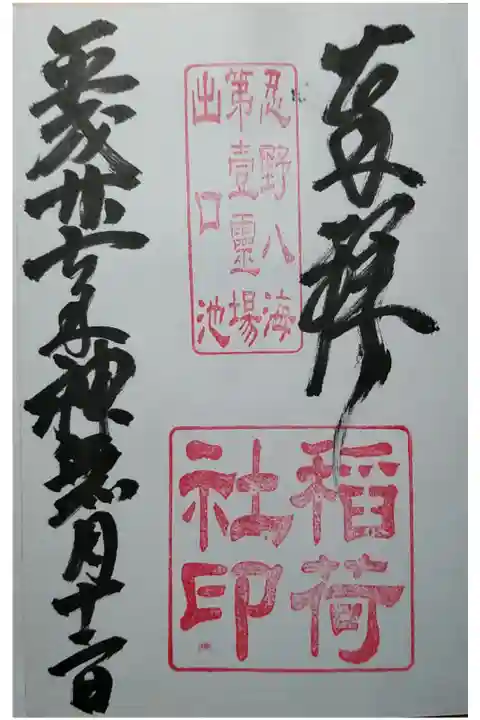 奉拝
忍野八海
第壹靈場
出口池
稲荷
社印
平成廿七年神無月十二日